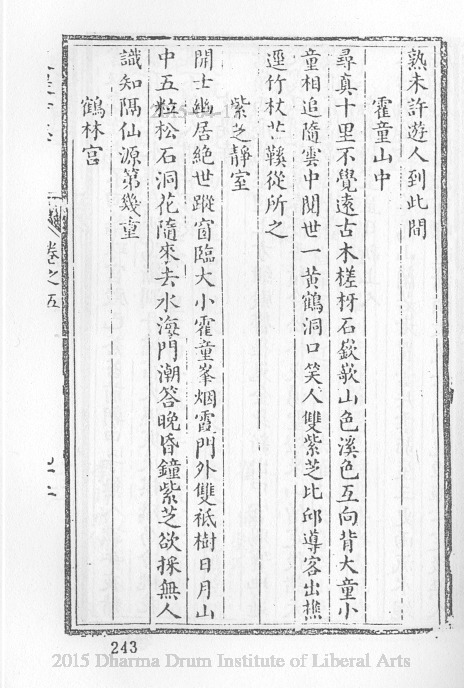 熟未許遊人到此間
霍童山中
尋真十里不覺遠古木槎枒石嶔嶔山色溪色互向背大童小
童相追隨雲中閱世一黃鶴洞口笑人雙紫芝比邱導客出樵
逕竹杖芒鞵從所之
紫芝靜室
開士幽居絕世蹤窗臨大小霍童峯烟霞門外雙祗樹日月山
中五粒松石洞花隨來去水海門潮答晚昏鐘紫芝欲採無人
識知隔仙源第幾重
鶴林宮
卷之五
243
2015 Dharma Drum Institute of Liberal Arts